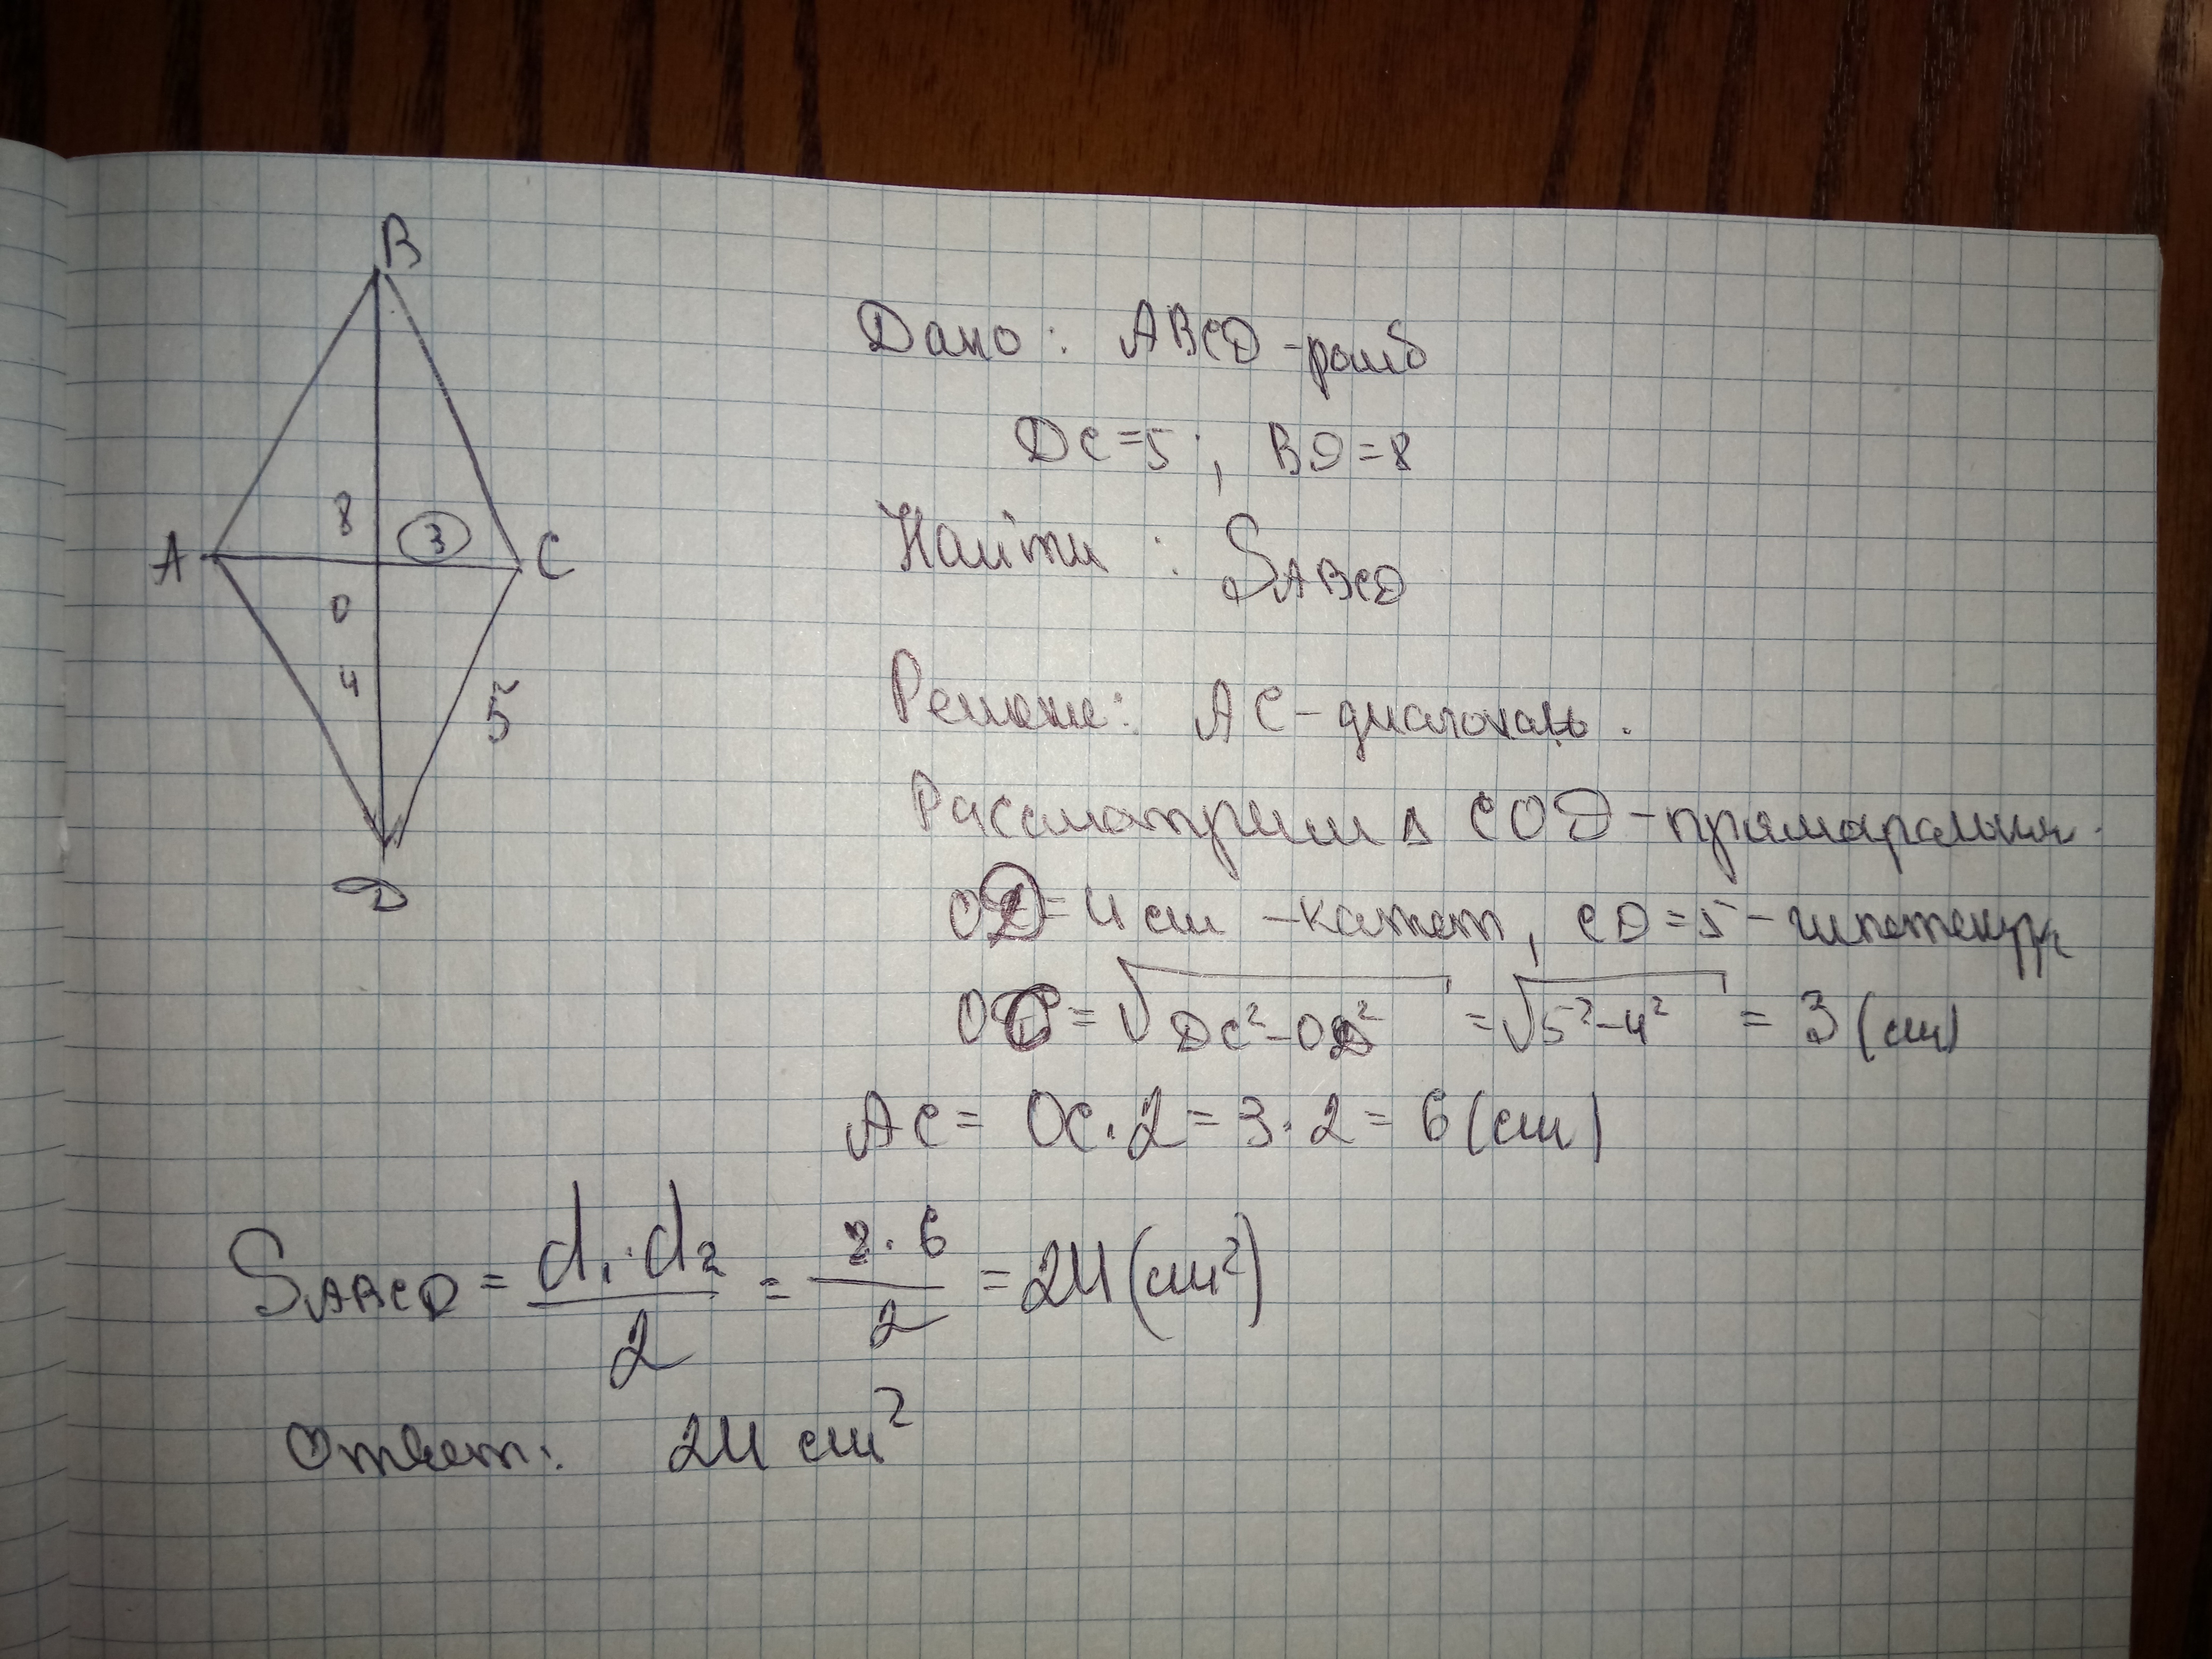 B
8
3
A
C
0
4
5
D
Дано: ABCD - ромб
DC = 5; BD = 8
Найти: S ABCD
Решение: AC - диагональ.
Рассмотрим Δ COD - прямоугольн.
OD = 4 см - катет, CD = 5 - гипотенуза
OC = √DC² - OD² = √5² - 4² = 3 (см)
AC = OC · 2 = 3 · 2 = 6 (см)
S ABCD = d₁ · d₂ / 2 = 8 · 6 / 2 = 24 (см²)
Ответ: 24 см²